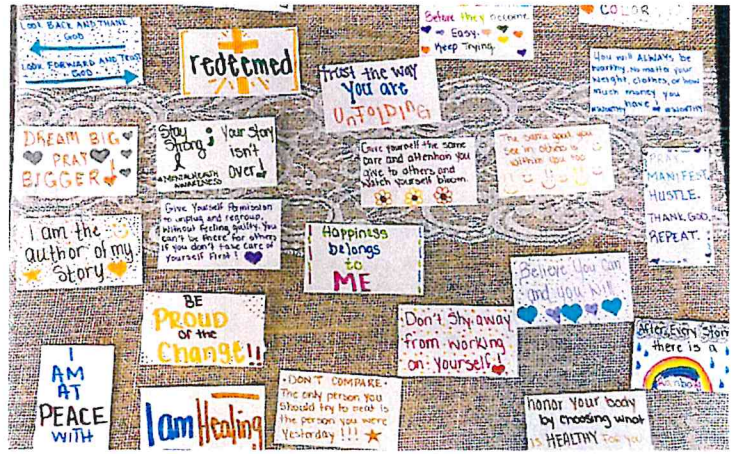 LOOK BACK AND THANK
GOD
LOOK FORWARD AND TRUST
GOD
redeemed
Before they become
Easy.
Keep Trying
COLOR
Trust the way
You are
UNFOLDING
You will ALWAYS be
worthy, no matter your
weight, clothes, or how
much money you
have
DREAM BIG
PRAY
BIGGER!
Stay
Strong;
#MENTALHEALTH
AWARENESS
Your Story
isn't
Over!
Give yourself the same
care and attention you
give to others and
watch yourself bloom.
The same good you
see in others is
within you too
PRAY.
MANIFEST.
HUSTLE.
THANK GOD.
REPEAT.
I am the
author of my
Story
Give Yourself Permission
to unplug and regroup,
Without feeling guilty. You
can't be there for others
if you don't take care of
Yourself First!
Happiness
belongs
to
ME
Believe You Can
and you Will
BE
PROUD
OF the
Change!!
Don't Shy away
from working
on yourself!
After Every Storm
there is a
Rainbow
I
AM
AT
PEACE
WITH
I am Healing
•DON'T COMPARE•
The only person you
Should try to beat is
the person you were
Yesterday!!!
honor your body
by choosing what
is HEALTHY for you